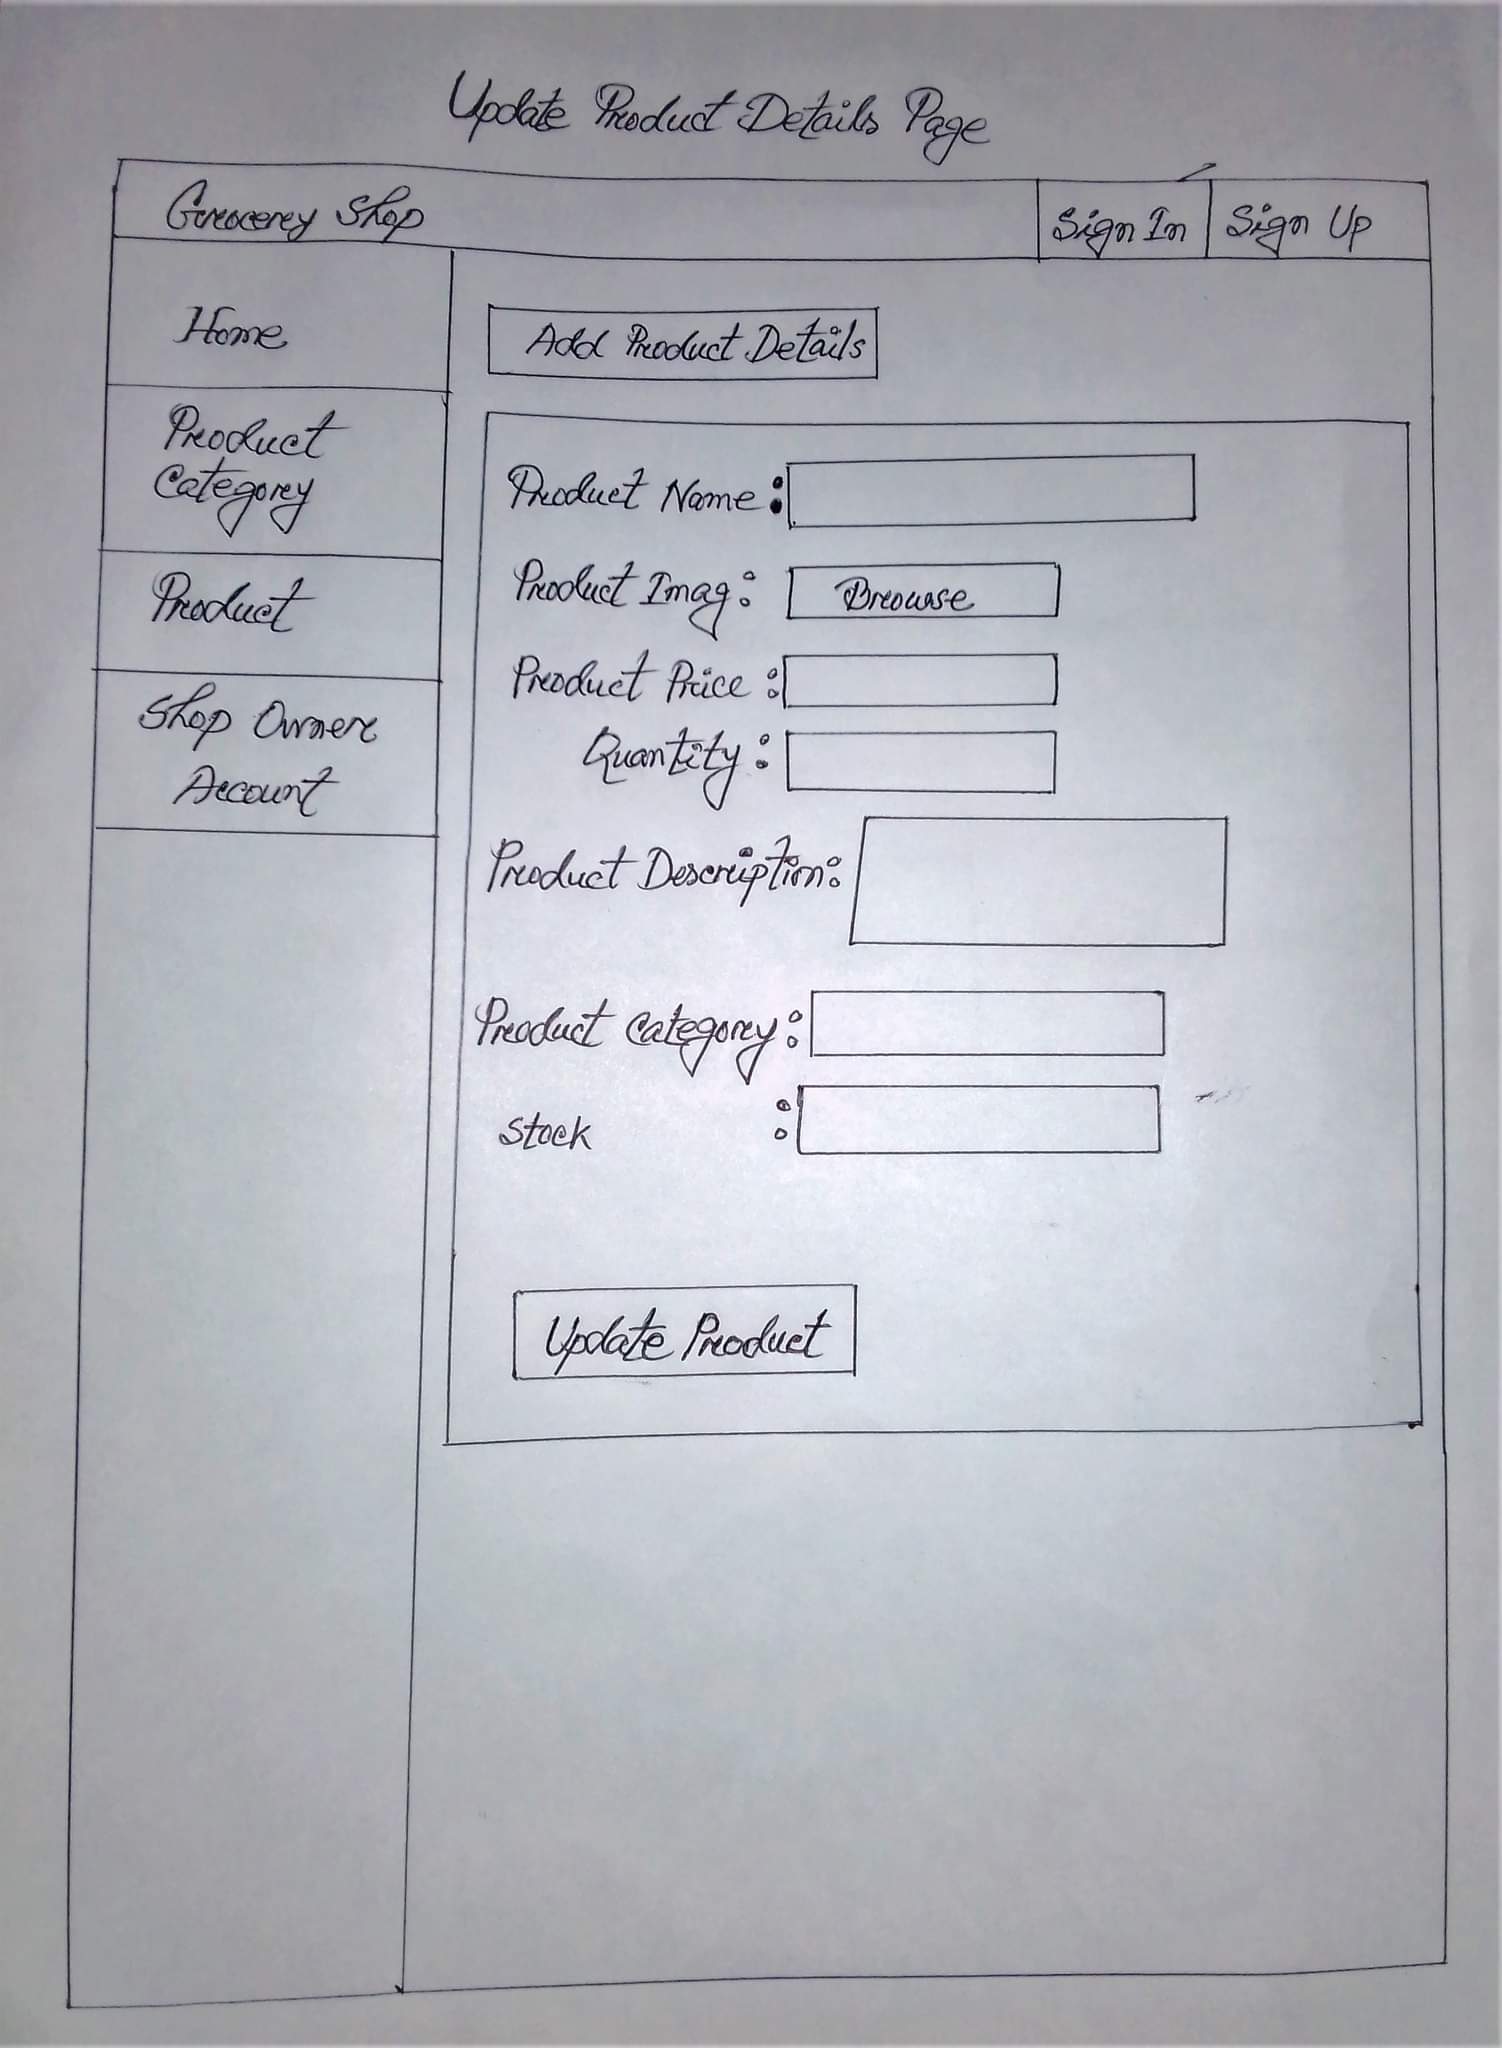 Update Product Details Page
Grocery Shop
Sign In
Sign Up
Home
Product
Category
Product
Shop Owner
Account
Add Product Details
Product Name :
Product Imag :
Browse
Product Price :
Quantity :
Product Description :
Product Category :
Stock :
Update Product